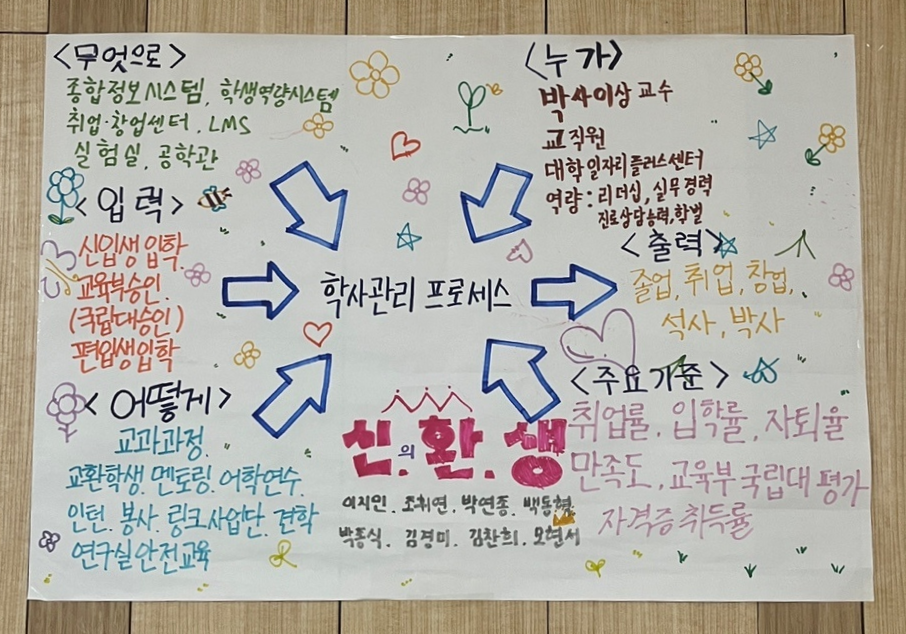 <무엇으로>
종합정보시스템, 학생역량시스템
취업·창업센터, LMS
실험실, 공학관
<누가>
박사이상 교수
교직원
대학일자리플러스센터
역량 : 리더십, 실무경력
진로상담능력, 학벌
<입력>
신입생 입학
교육부승인.
(국립대승인)
편입생입학
학사관리 프로세스
<출력>
졸업, 취업, 창업,
석사, 박사
<어떻게>
교과과정.
교환학생. 멘토링. 어학연수.
인턴. 봉사. 링크사업단. 견학
연구실안전교육
<주요기준>
취업률, 입학률, 자퇴율
만족도, 교육부 국립대 평가
자격증취득률
신의 환.생
이지민. 조휘연. 박연종. 백동협
박종식. 김경미. 김찬희. 오현서